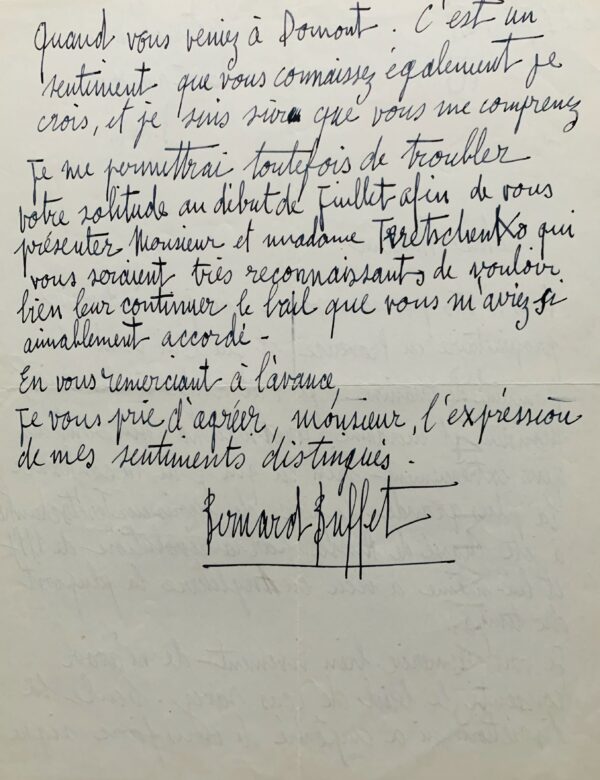 quand vous veniez à Domont. C'est un
sentiment que vous connaissez également je
crois, et je suis sûr que vous me comprenez
Je me permettrai toutefois de troubler
votre solitude au début de Juillet afin de vous
présenter Monsieur et madame Teretschenko qui
vous seraient très reconnaissants de vouloir
bien leur continuer le bail que vous m'aviez si
aimablement accordé -
En vous remerciant à l'avance,
Je vous prie d'agréer, monsieur, l'expression
de mes sentiments distingués.
Bernard Buffet